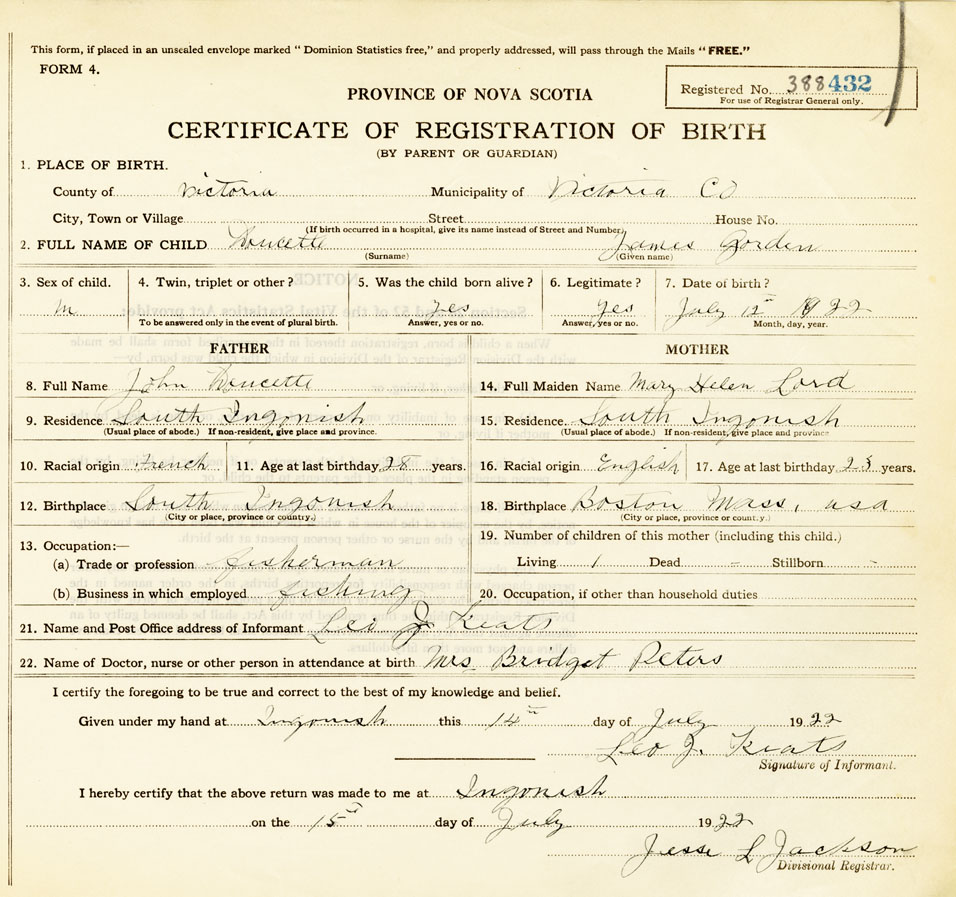 This form, if placed in an unsealed envelope marked "Dominion Statistics free," and properly addressed, will pass through the Mails "FREE."
FORM 4.
Registered No. 388432
For use of Registrar General only.
PROVINCE OF NOVA SCOTIA
CERTIFICATE OF REGISTRATION OF BIRTH
(BY PARENT OR GUARDIAN)
1. PLACE OF BIRTH.
County of Victoria Municipality of Victoria Co
City, Town or Village Street House No.
(If birth occurred in a hospital, give its name instead of Street and Number)
2. FULL NAME OF CHILD Doucette James Gorden
(Surname) (Given name)
3. Sex of child. 4. Twin, triplet or other? 5. Was the child born alive? 6. Legitimate? 7. Date of birth?
m yes yes July 12th 1922
To be answered only in the event of plural birth. Answer, yes or no. Answer, yes or no. Month, day, year.
FATHER MOTHER
8. Full Name John Doucette 14. Full Maiden Name Mary Helen Lord
9. Residence South Ingonish 15. Residence South Ingonish
(Usual place of abode.) If non-resident, give place and province. (Usual place of abode.) If non-resident, give place and province
10. Racial origin French 11. Age at last birthday 28 years. 16. Racial origin English 17. Age at last birthday 23 years.
12. Birthplace South Ingonish 18. Birthplace Boston Mass, usa
(City or place, province or country.) (City or place, province or country.)
13. Occupation:— 19. Number of children of this mother (including this child.)
(a) Trade or profession fisherman Living 1 Dead - Stillborn -
(b) Business in which employed fishing 20. Occupation, if other than household duties
21. Name and Post Office address of Informant Leo J Keats
22. Name of Doctor, nurse or other person in attendance at birth Mrs Bridget Peters
I certify the foregoing to be true and correct to the best of my knowledge and belief.
Given under my hand at Ingonish this 14th day of July 1922
Leo J. Keats
Signature of Informant.
I hereby certify that the above return was made to me at Ingonish
on the 15th day of July 1922
Jesse L Jackson
Divisional Registrar.